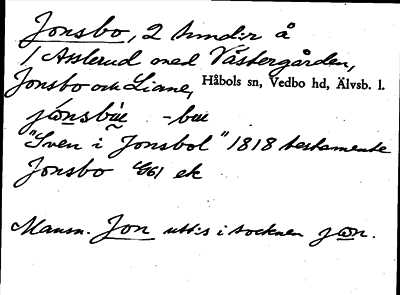 Jonsbo, 2 hmd:r å
1 Asslerud med Västergården,
Jonsbo och Liane, Håbols sn, Vedbo hd, Älvsb. l.
-bu
"Sven i Jonsbol" 1818 testamente
Jonsbo ek
Mansn. Jon utt:s i socknen jωn.